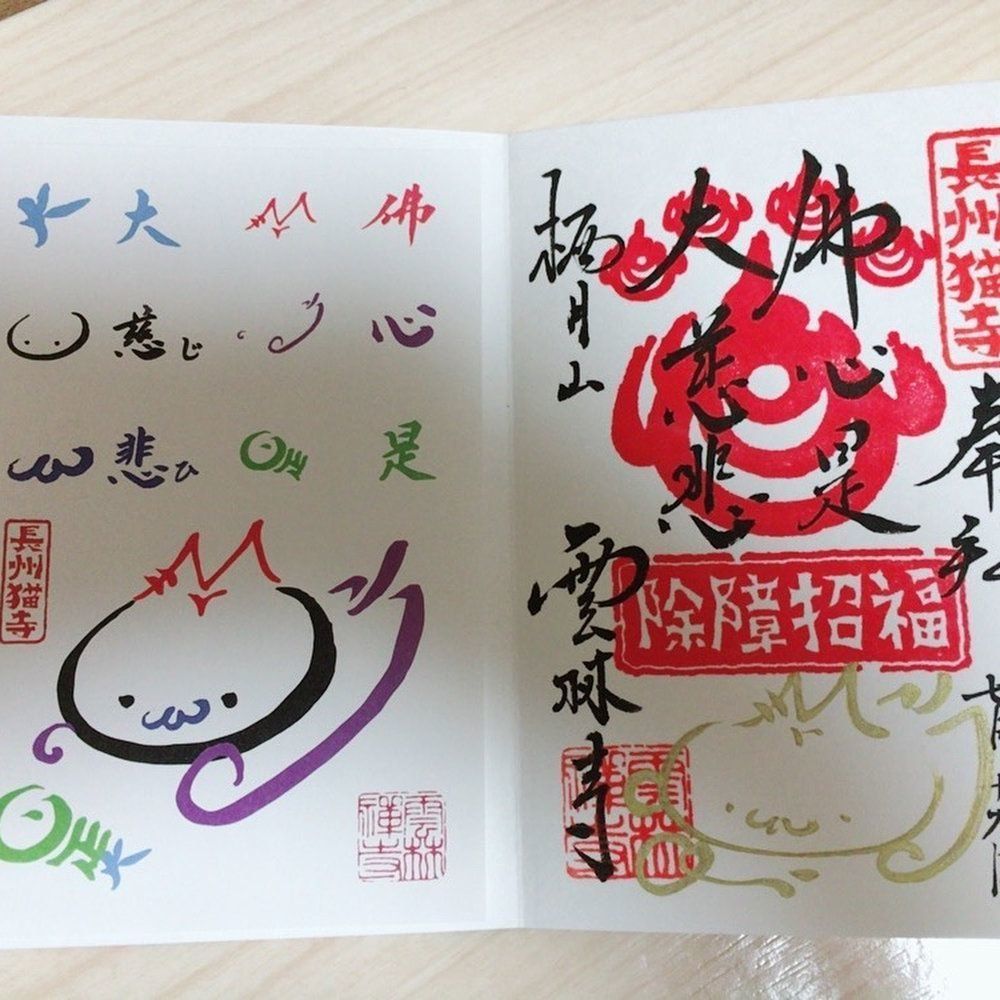 長州猫寺
奉拝
佛心是
大慈悲
栖月山
雲林寺
除障招福
雲林禅寺
佛心是
大慈じ悲ひ
長州猫寺
雲林禅寺